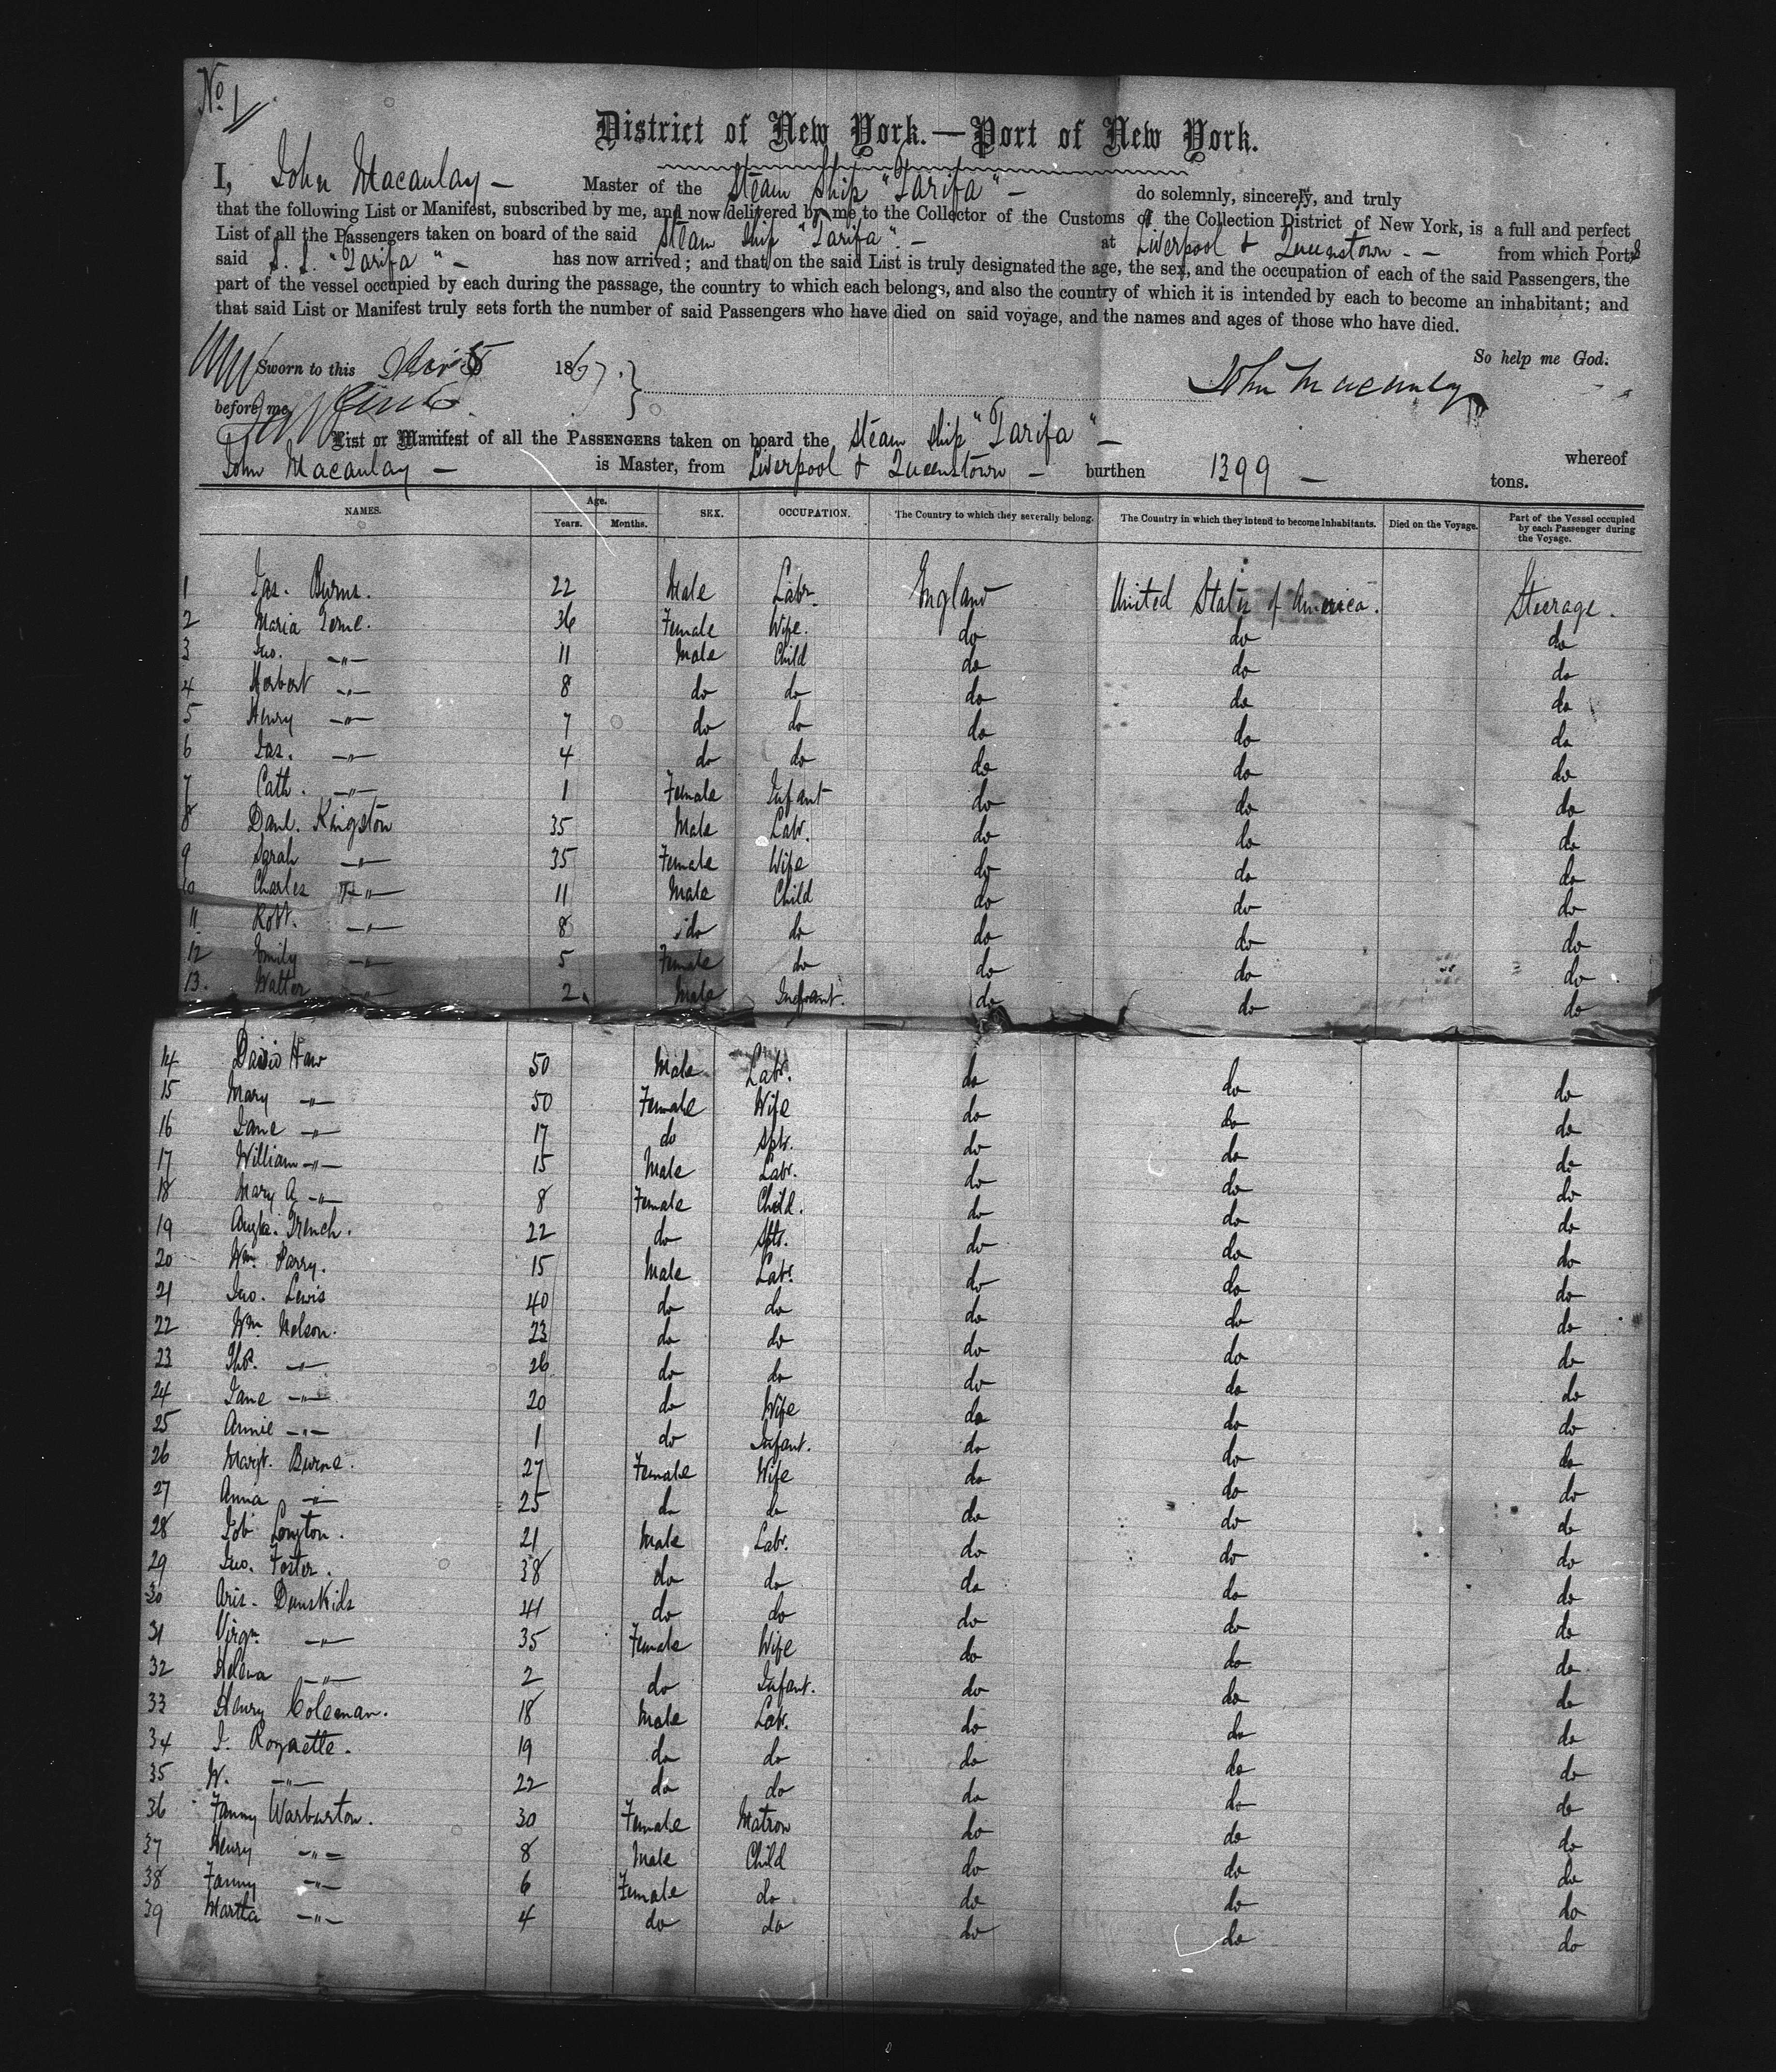 No 1
District of New York.—Port of New York.
I, John Macaulay — Master of the Steam Ship "Tarifa" — do solemnly, sincerely, and truly
that the following List or Manifest, subscribed by me, and now delivered by me to the Collector of the Customs of the Collection District of New York, is a full and perfect
List of all the Passengers taken on board of the said Steam Ship "Tarifa". — at Liverpool & Queenstown. — from which Ports
said S. S. "Tarifa" — has now arrived; and that on the said List is truly designated the age, the sex, and the occupation of each of the said Passengers, the
part of the vessel occupied by each during the passage, the country to which each belongs, and also the country of which it is intended by each to become an inhabitant; and
that said List or Manifest truly sets forth the number of said Passengers who have died on said voyage, and the names and ages of those who have died.
So help me God.
Sworn to this 5 1867.
John Macaulay
before me
List or Manifest of all the PASSENGERS taken on board the Steam Ship "Tarifa" — whereof
John Macaulay — is Master, from Liverpool & Queenstown — burthen 1399 — tons.
NAMES. Age. Years. Months. SEX. OCCUPATION. The Country to which they severally belong. The Country in which they intend to become Inhabitants. Died on the Voyage. Part of the Vessel occupied by each Passenger during the Voyage.
1 Jas. Burns. 22 Male Labr. England United States of America. Steerage.
2 Maria 36 Female Wife. do do do
3 Jno. —"— 11 Male Child do do do
4 Herbert —"— 8 do do do do do
5 Henry —"— 7 do do do do do
6 Jas. —"— 4 do do do do do
7 Cath. —"— 1 Female Infant do do do
8 Danl. Kingston 35 Male Labr. do do do
9 Sarah —"— 35 Female Wife do do do
10 Charles —"— 11 Male Child do do do
11 Robt. —"— 8 do do do do do
12 Emily —"— 5 Female do do do do
13. Walter —"— 2 Male Infant. do do do
14 David Haw 50 Male Labr. do do do
15 Mary —"— 50 Female Wife do do do
16 Jane —"— 17 do Sptr. do do do
17 William —"— 15 Male Labr. do do do
18 Mary A —"— 8 Female Child. do do do
19 French. 22 do Sptr. do do do
20 Wm. Parry. 15 Male Labr. do do do
21 Jno. Lewis 40 do do do do do
22 Wm Nelson. 23 do do do do do
23 Thos. —"— 26 do do do do do
24 Jane —"— 20 do Wife do do do
25 Annie —"— 1 do Infant. do do do
26 Margt. Burne. 27 Female Wife do do do
27 Anna —"— 25 do do do do do
28 Job Longton. 21 Male Labr. do do do
29 Jno. Foster. 38 do do do do do
30 Aris. Danskids 41 do do do do do
31 Virgn. —"— 35 Female Wife do do do
32 Helena —"— 2 do Infant. do do do
33 Henry Coleman. 18 Male Labr. do do do
34 J. 19 do do do do do
35 W. —"— 22 do do do do do
36 Fanny Warburton. 30 Female Matron do do do
37 Henry —"— 8 Male Child do do do
38 Fanny —"— 6 Female do do do do
39 Martha —"— 4 do do do do do